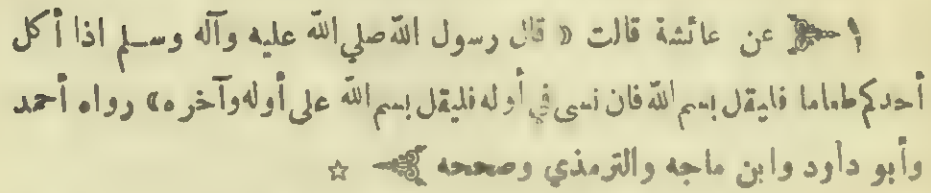 ١ عن عائشة قالت « قال رسول الله صلي الله عليه وآله وسلم اذا أكل
أحدكم طعاما فليقل بسم الله فان نسى في أوله فليقل بسم الله على أوله وآخره» رواه أحمد
وأبو داود وابن ماجه والترمذي وصححه ☆